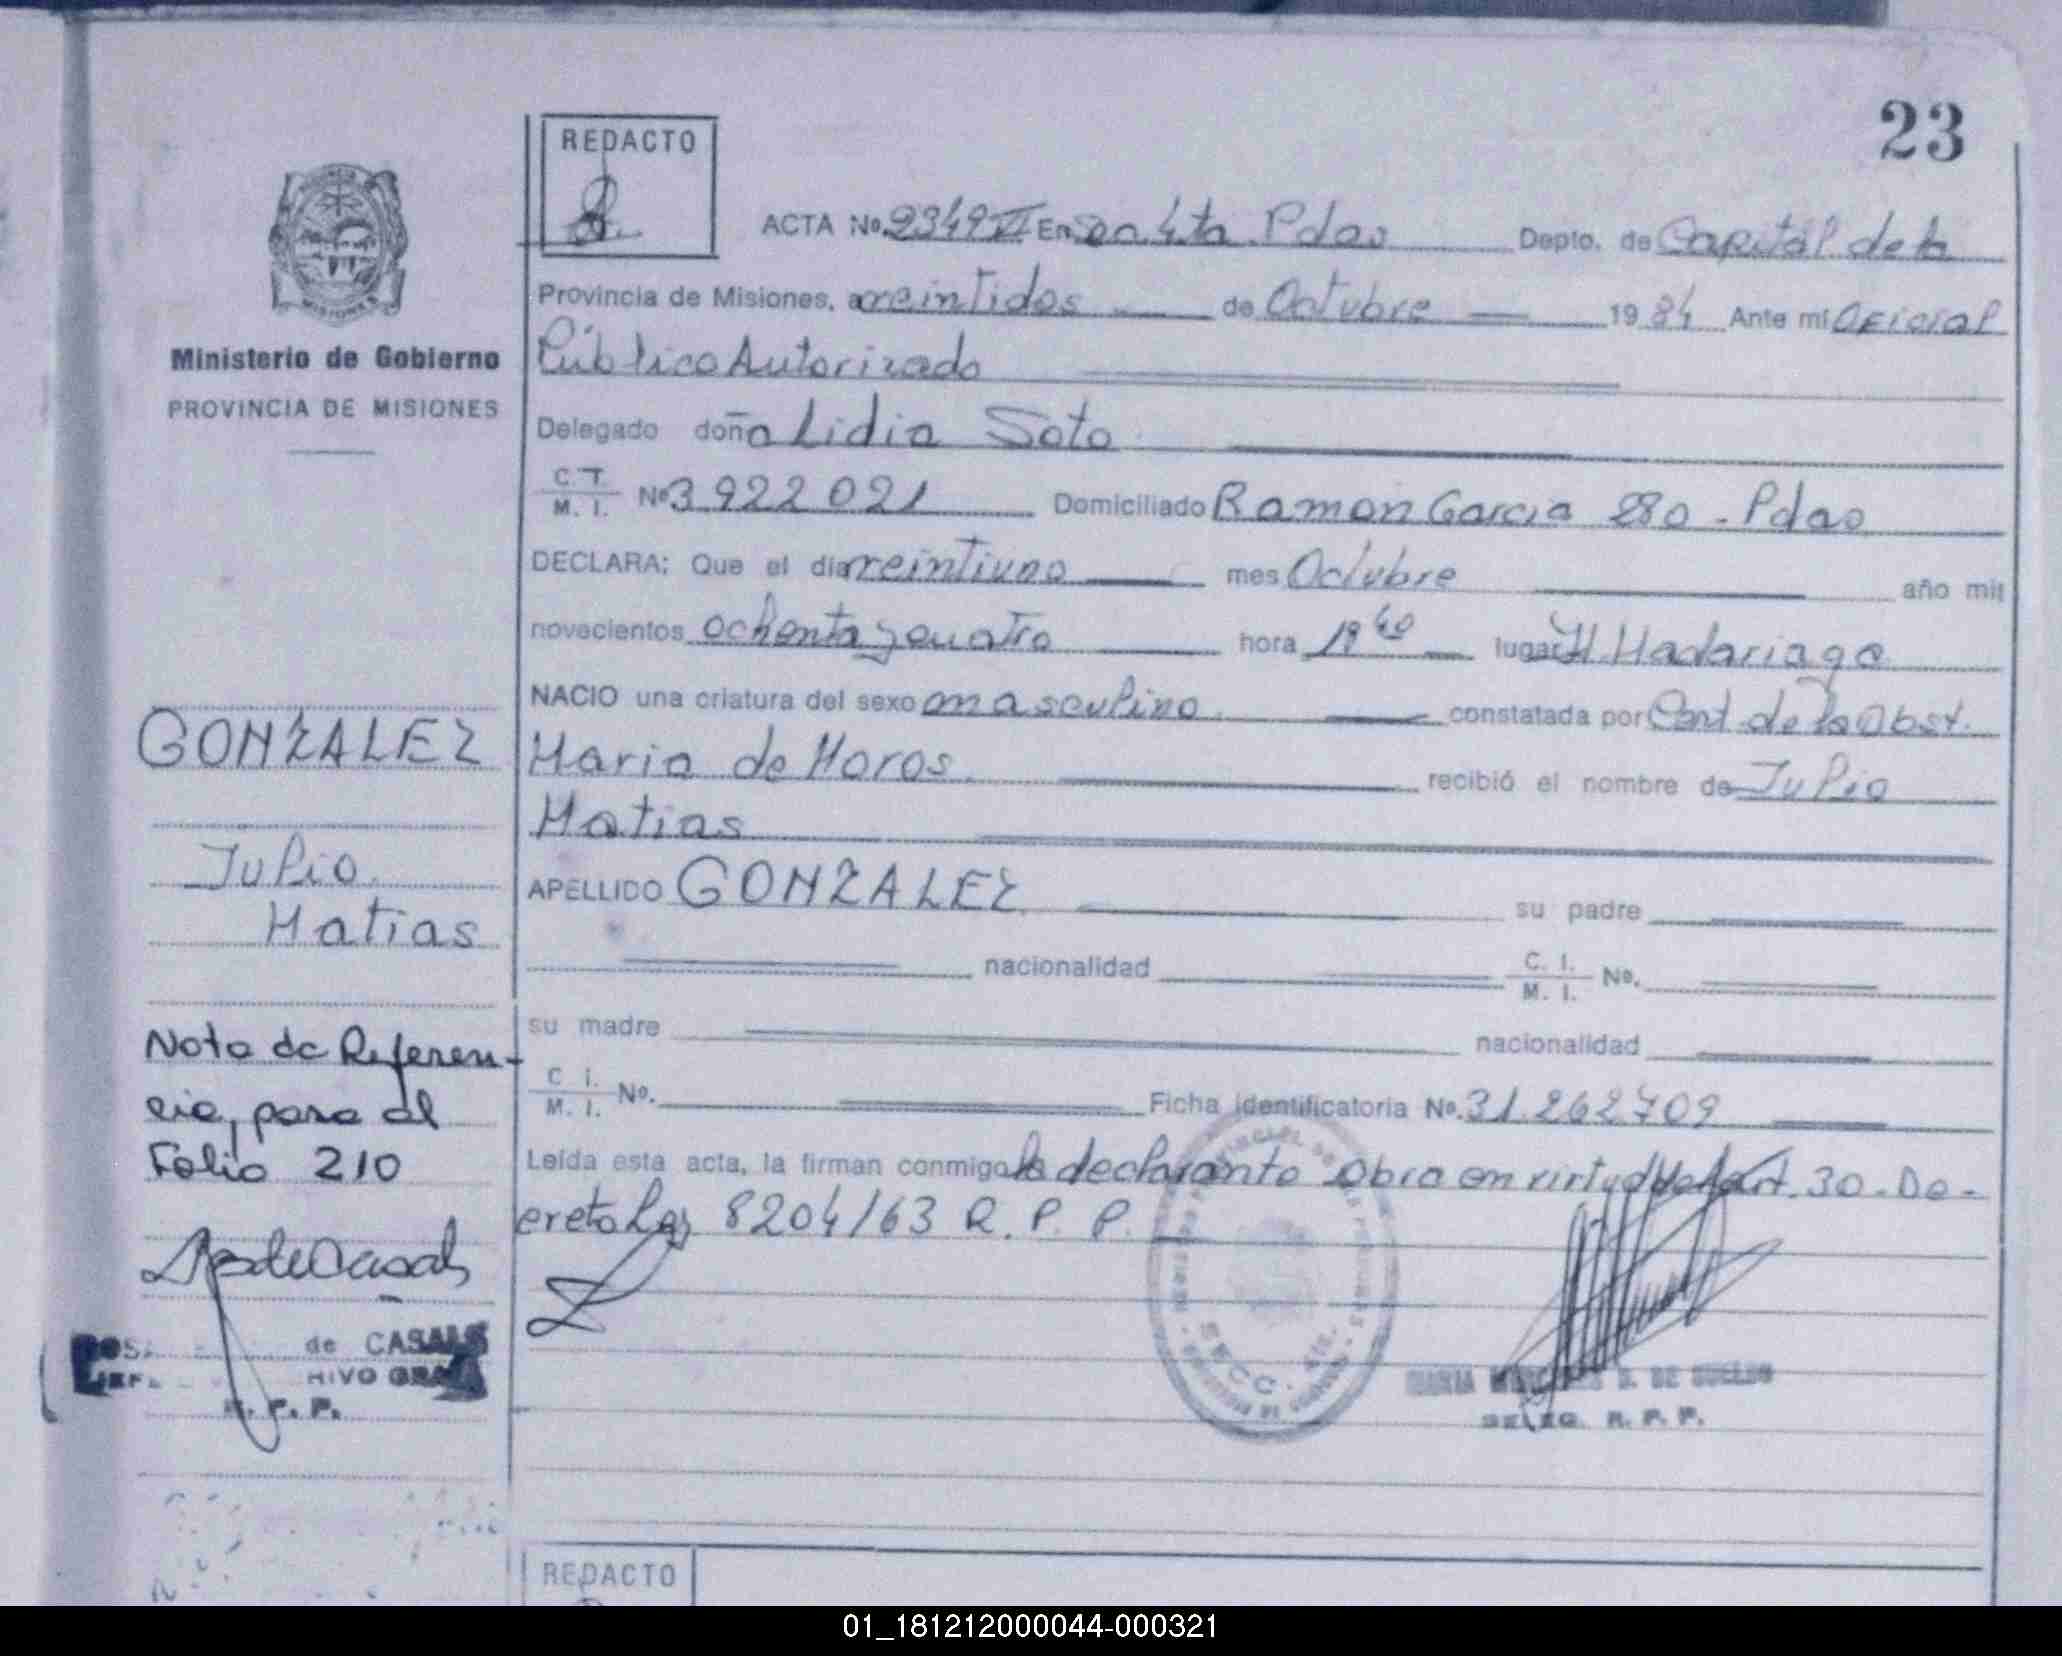 23
REDACTO
ACTA No. 2349 VI En Sec. 4ta. Pdas Depto. de Capital de la
Provincia de Misiones, a veintidos de Octubre 1984 Ante mi Oficial
Público Autorizado
Ministerio de Gobierno
PROVINCIA DE MISIONES
Delegado doña Lidia Soto
C. I. M. I. No 3922021 Domiciliado Ramon Garcia 280 - Pdas
DECLARA: Que el dia veintiuno mes Octubre año mil
novecientos ochenta y cuatro hora 19 40 lugar H. Madariaga
NACIO una criatura del sexo masculino constatada por Cert. de la Obst.
Maria de Moros recibió el nombre de Julio
Matias
APELLIDO GONZALEZ su padre
nacionalidad C. I. M. I. No.
su madre nacionalidad
C. I. M. I. No. Ficha identificatoria No. 31.262709
Leida esta acta, la firman conmigo la declarante Obra en virtud del art. 30 - De-
creto Ley 8204/63 R. P. P.
GONZALEZ
Julio
Matias
Nota de Referen-
cia, para al
Folio 210
de CASALS
R. P. P.
SECC. 4ta.
DE SUELDO
DELEG. R. P. P.
REDACTO
01_181212000044-000321